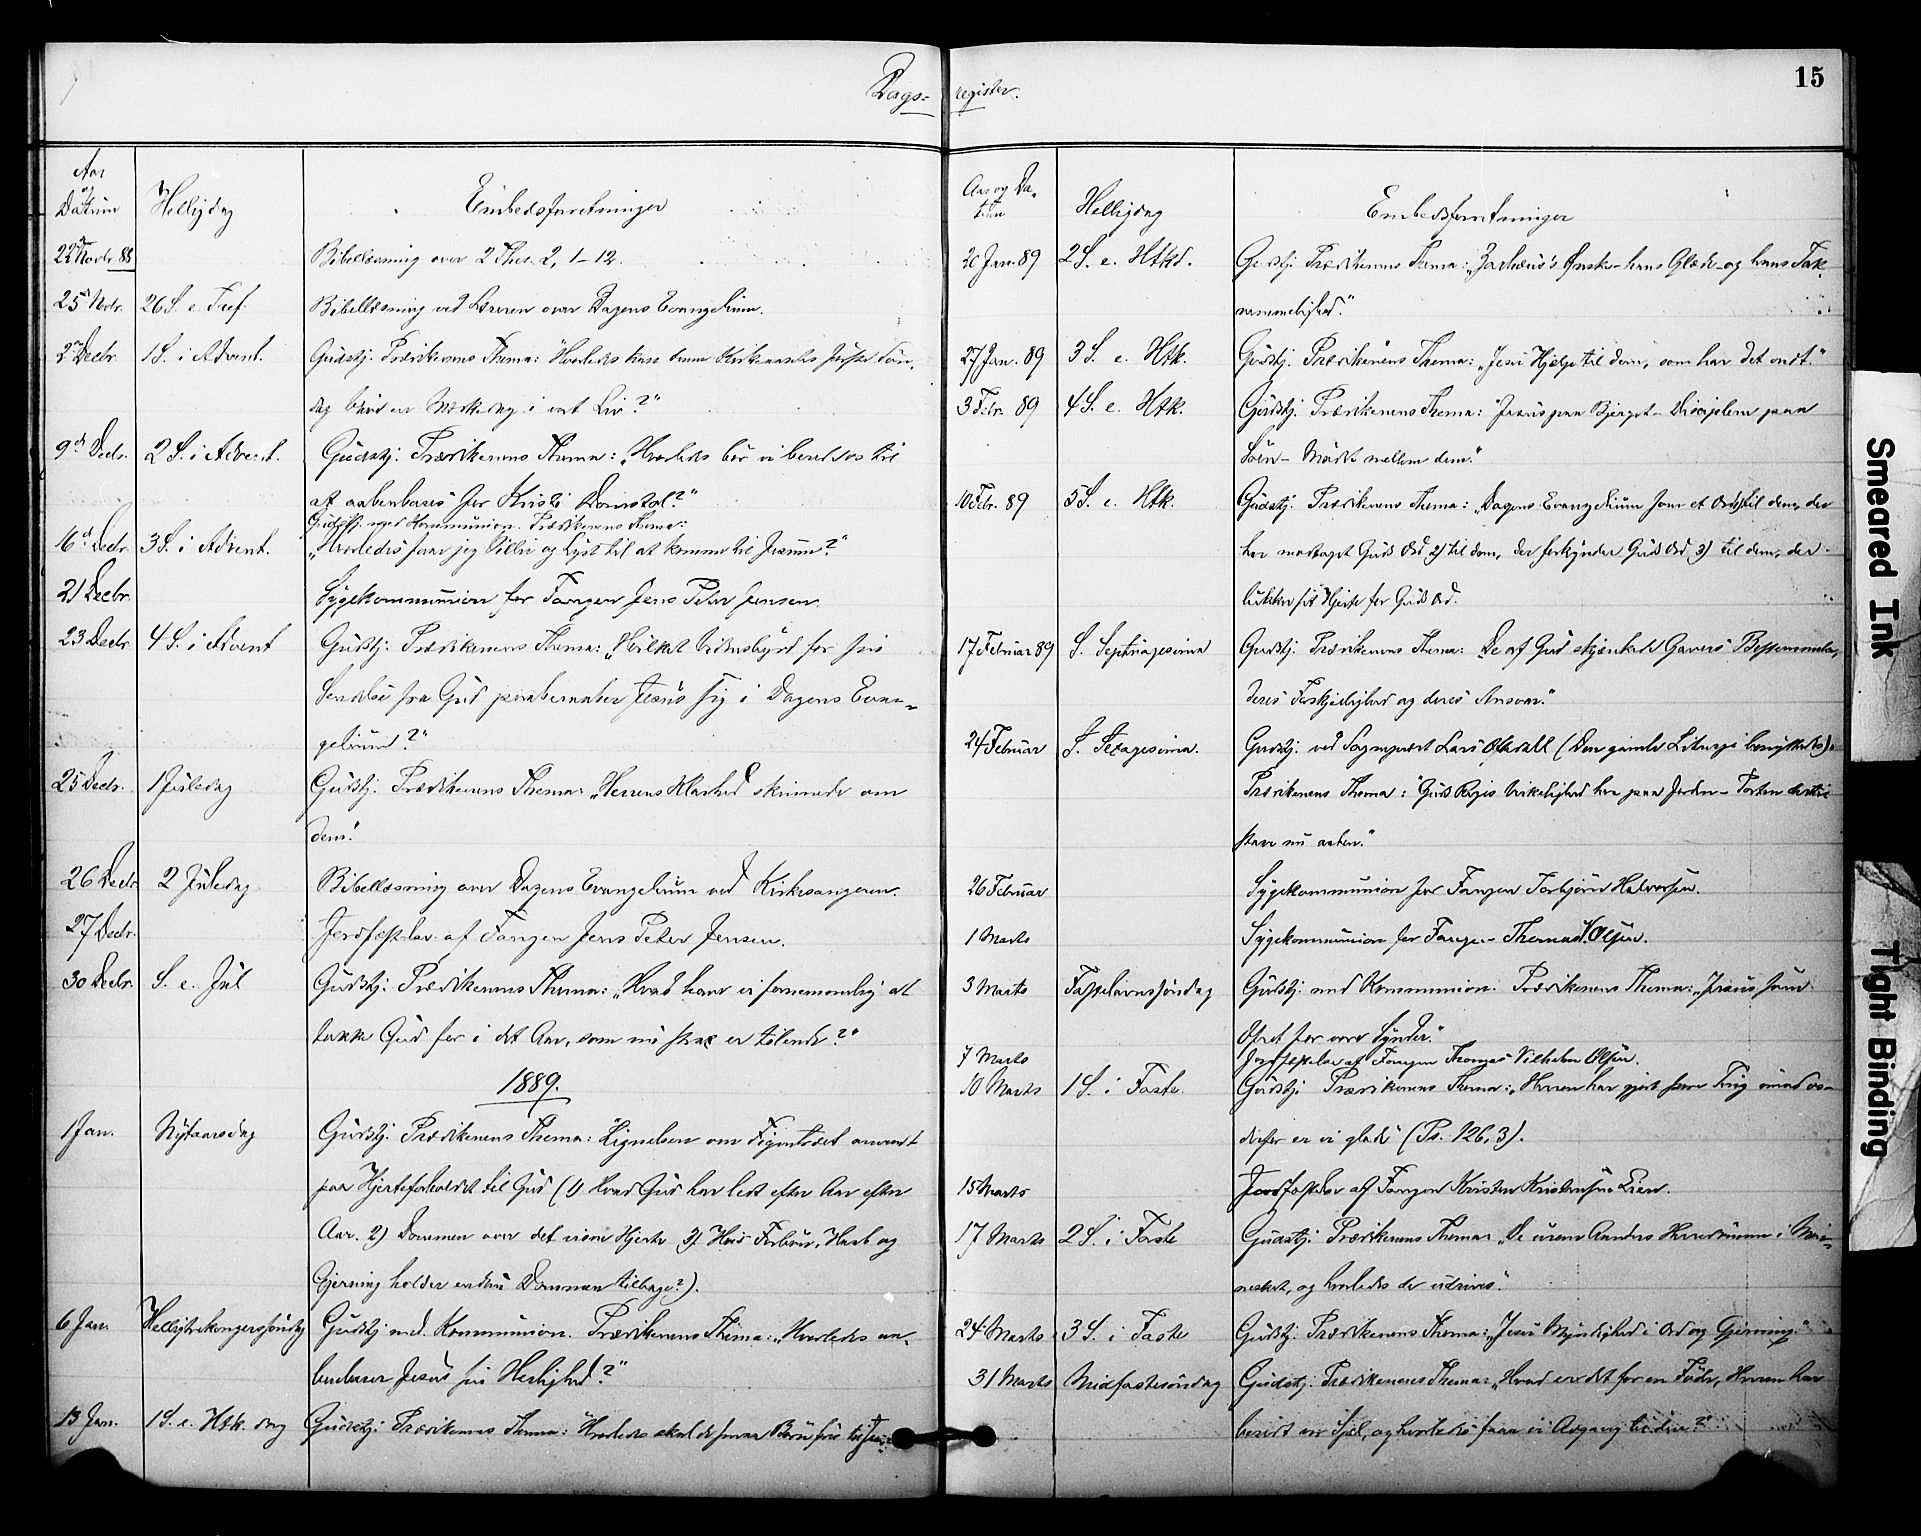 Dags-register.
15
Aar og Datum
Helligdag
Embedsforretninger
22 Novbr. 88
Bibellæsning over 2 Thes. 2, 1-12.
25 Novbr. 26 S. e. Tref.
Bibellæsning ved Læreren over Dagens Evangelium.
2 Decbr. 1 S. i Advent.
Gudstj. Prædikenens Thema: "Hvorledes kan denne Kirkeaarets første Søn-
dag blive en Mærkedag i vort Liv?"
9d Decbr. 2 S. i Advent.
Gudstj. Prædikenens Thema: "Hvorledes bør vi beredes til
at aabenbares for Kristi Domstol?"
Gudstj. med Kommunion. Prædikenens Thema:
16d Decbr. 3 S. i Advent.
"Hvorledes faar jeg Villie og Lyst til at komme til Jesum?"
21 Decbr.
Sygekommunion for Fangen Jens Peter Jensen.
23 Decbr. 4 S. i Advent
Gudstj. Prædikenens Thema: "Hvilket Vidnesbyrd for sin
Sendelse fra Gud paaberaaber Jesus sig i Dagens Evan-
gelium?"
25 Decbr. 1 Juledag
Gudstj. Prædikenens Thema: "Herrens Klarhed skinnede om
dem."
26 Decbr. 2 Juledag
Bibellæsning over Dagens Evangelium ved Kirkesangeren.
27 Decbr.
Jordfæstelse af Fangen Jens Peter Jensen.
30 Decbr. S. e. Jul
Gudstj. Prædikenens Thema: "Hvad have vi fornemmelig at
takke Gud for i det Aar, som nu strax er tilende?"
1889.
1 Jan. Nytaarsdag
Gudstj. Prædikenens Thema: Lignelsen om Figentræet anvendt
paa Hjerteforholdet til Gud (1) Hvad Gud har ledt efter Aar efter
Aar. 2) Dommen over det Hjerte 3) Hvis Forbøn, Haab og
Gjerning holder endnu Dommen tilbage?).
6 Jan. Helligtrekongerssøndag
Gudstj. med Kommunion. Prædikenens Thema: "Hvorledes aa-
benbarer Jesus sin Herlighed?"
13 Jan. 1 S. e. Htk. dag
Gudstj. Prædikenens Thema: "Hvorledes skal de Børn
Aar og Da-
tum
Helligdag
Embedsforretninger
20 Jan. 89 2 S. e. Htkd.
Gudstj. Prædikenens Thema: "Zachæus's Ønske - hans Glæde - og hans Tak-
nemmelighed."
27 Jan. 89 3 S. e. Htk.
Gudstj. Prædikenens Thema: "Jesu Hjælp til dem, som har det ondt."
3 Febr. 89 4 S. e. Htk.
Gudstj. Prædikenens Thema: "Jesus paa Bjerget - Disciplene paa
Søen - Mødet mellem dem."
10 Febr. 89 5 S. e. Htk.
Gudstj. Prædikenens Thema: "Dagens Evangelium som et Ord 1) til dem, der
har modtaget Guds Ord 2) til dem, der forkynder Guds Ord 3) til dem, der
lukker sit Hjerte for Guds Ord.
17 Februar 89 S. Septuagesima
Gudstj. Prædikenens Thema: De af Gud skjænkede Gavers Bestemmelse,
deres Forskjellighed og deres Ansvar."
24 Februar S. Sexagesima.
Gudstj. ved Sogneprest Lars Oftedal (Den gamle Liturgi benyttedes).
Prædikenens Thema: "Guds Riges Virkelighed her paa Jorden - Porten dertil
staar nu aaben."
26 Februar
Sygekommunion for Fangen Torbjørn Halvorsen.
1 Marts
Sygekommunion for Fangen Thomas V. Olsen.
3 Marts Fastelavnssøndag
Gudstj. med Kommunion. Prædikenens Thema: "Jesus som
Ofret for vore Synder."
7 Marts
Jordfæstelse af Fangen Thomas Vilhelm Olsen.
10 Marts 1 S. i Faste.
Gudstj. Prædikenens Thema: "Herren har gjort store Ting imod os -
derfor er vi glade" (Ps. 126,3).
15 Marts
Jordfæstelse af Fangen Kristen Kristensen Lien.
17 Marts 2 S. i Faste
Gudstj. Prædikenens Thema: "De urene Aanders Herredømme i Men-
nesket, og hvorledes de uddrives."
24 Marts 3 S. i Faste
Gudstj. Prædikenens Thema: "Jesu Myndighed i Ord og Gjerning."
31 Marts Midfastesøndag
Gudstj. Prædikenens Thema: "Hvad er det for en Føde, Herren har
beredt vor Sjæl, og hvorledes faar vi Adgang til den?"
Smeared Ink
Tight Binding